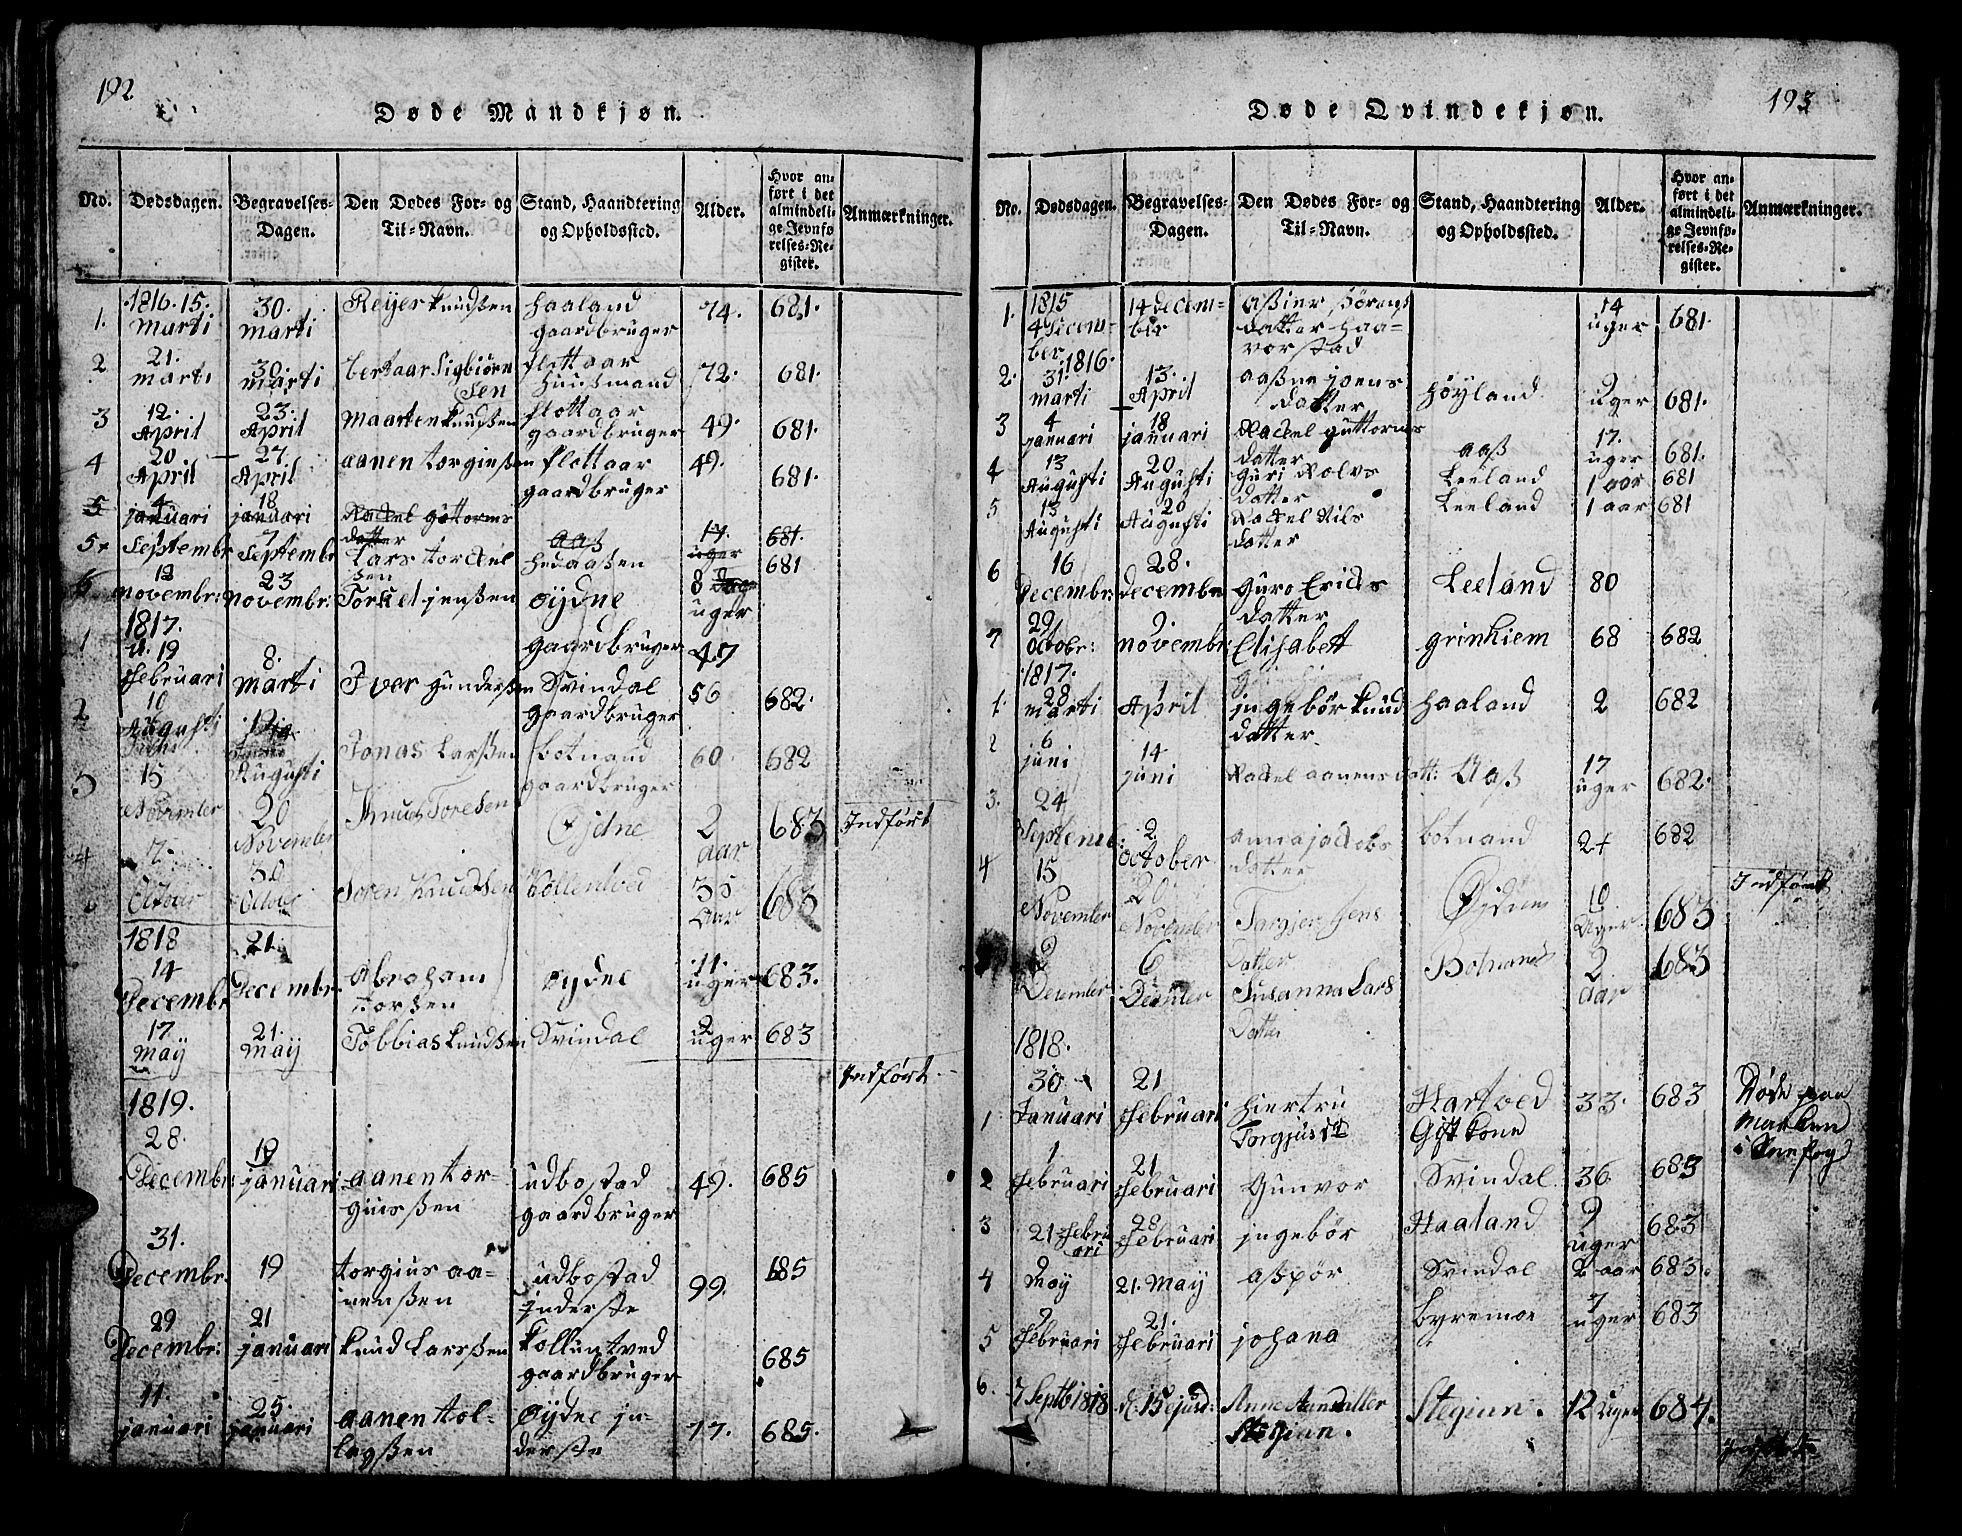 192
Døde Mandkjøn.
No. Dødsdagen. Begravelses-Dagen. Den Dødes For- og Til-Navn. Stand, Haandtering og Opholdssted. Alder. Hvor anført i det almindelige Jevnførelses-Register. Anmærkninger.
1. 1816. 15. Marti 30. Marti Reijer Knudsen Haaland gaardbruger 74. 681.
2 21. Marti 30. Marti Sigbiørnsen flottaar Huusmand 72. 681.
3 12. April 23. April Maarten Knudsen flottaar gaardbruger 49. 681.
4 20 April 27. April Aanen Torginssen flottaar gaardbruger 49. 681.
5 4 januari 18 januari Rachel guttorms datter Aas 17. uger 681.
5. Septembr 7 Septembr Lars Torckelssen 681
6 12 novembr: 23 novembr: Torkel jenssen Øÿdne 8 uger
1817.
1 d. 19 Februari 8. Marti Iver gunderssen Svindal gaardbruger 47 56 682.
2 10 Augusti Augusti Jonas Larssen botnand gaardbruger 60. 682
3 15 November 20 November Knud Toresen Øjdne 2 aar 683 Indført
4 October 30 October Søren Knudsen Kollentved 35 Aar 683
1818
14 Decembr 21. Decembr. Abraham Torssen Øÿdne 11. uger 683.
17 Maÿ 21. Maÿ Tobbias Knudsen Svindal 2 uger 683
Indført
1819.
28. Decembr: 19 januari Aanen Torgiussen udbostad gaardbruger 49. 685
31. Decembr. 19 Torgius Aanenssen udbostad Inderste 99. 685
29 Decembr: 21 januari Knud Larssen Kolluntved gaardbruger 685
11. januari 25. januari Aanen Tollagssen Øÿdne Inderste 77. 685.
193
Døde Qvindekjøn.
No. Dødsdagen. Begravelses-Dagen. Den Dødes For- og Til-Navn. Stand, Haandtering og Opholdssted. Alder. Hvor anført i det almindelige Jevnførelses-Register. Anmærkninger.
1. 1815 4 Decem-ber 14 Decem-ber Sørens datter Haavorstad 14 uger 681.
2. 1816. 31. Marti 13. April Aasne joens datter Høyland 9 uger 681.
3 4 januari 18 januari Rachel guttorms datter Aas 17. uger 681.
4 13 Augusti 20 Augusti Guri Rolvs datter Leeland 1 aar 681
5 13 Augusti 20 Augusti Rachel Nils datter Leeland 1 aar 681
6 16 Decembr: 28. Decembr Guro Erichs datter Leeland 80
7 29 Octobr: 9. Novembr: Elisabett grinhiem 68 682
1817.
1. 28 Marti 7 April jngebør Knud datter Haaland 2 682
2 6 juni 14 juni Rachel Aanens datt: Aas 17 uger 682.
3. 24 Septemb: 2 October Anna jacobs datter botnand 24 682
4 15 November 20 November Torgjer Jens Datter 10 Uger 683 Indført
2 December 6 December Susanna Lars Datter Botnand 2 aar 683
1818.
1 30 Januari 21 Februari Hiertru Torgjusd Hartved Gift kone 33. 683 Døde paa Marken i Sneefog
2 1 Februari 21 Februari Gunvor Svindal 36. 683
3 21 Februari 28 Februari jngebør Haaland 9 uger 683
4 Maÿ 21. Maÿ Aspør Svindal 2 aar 683.
5 9 Februari 21. Februari johana Byremoe 7 uger 683
6. 7 Septb 1818 d. 15 ejusd: Anne Steginn. Steginn. 12 Uger 684.